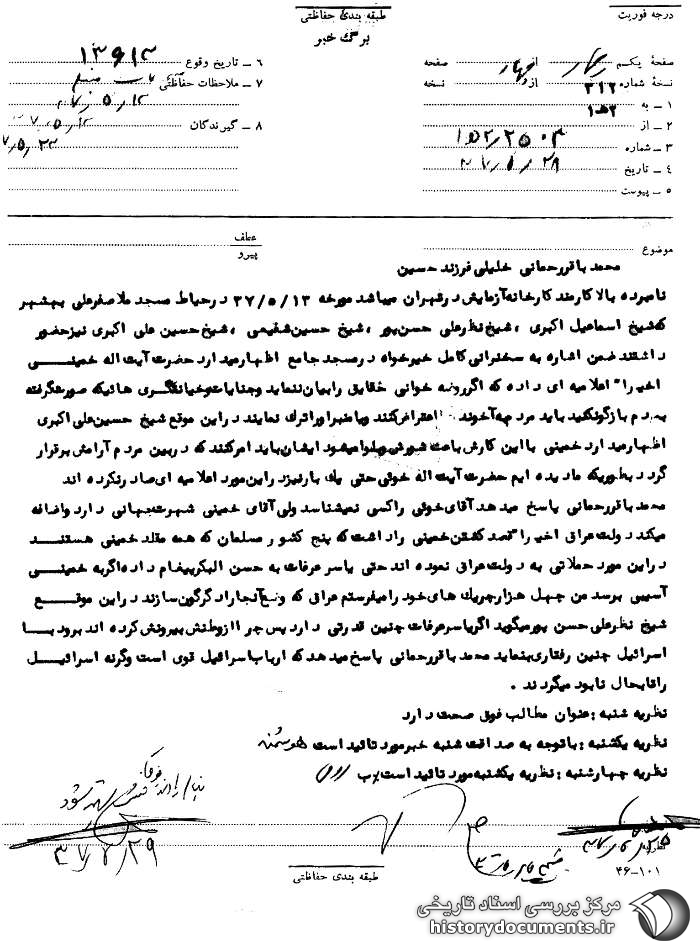 درجه فوریت
طبقه بندی حفاظتی
برگ خبر
صفحهٔ یکم از چهار صفحه
نسخهٔ شماره ۳۱۲ از نسخه
۱ ــ به ۱۵۲
۲ ــ از
۳ ــ شماره ۱۵۲/۲۵۰۳
۴ ــ تاریخ ۳۷/۵/۲۸
۵ ــ پیوست
۶ ــ تاریخ وقوع ۱۳۶۱۳
۷ ــ ملاحظات حفاظتی
۸ ــ گیرندگان
موضوع
عطف
پیرو
محمد باقر رحمانی خلیلی فرزند حسین
نامبرده بالا کارمند کارخانه آزمایش در تهران میباشد مورخه ۳۷/۵/۱۳ در حیاط مسجد ملا صفرعلی بهشهر
که شیخ اسماعیل اکبری ، شیخ نظرعلی حسن پور ، شیخ حسین شفیعی ، شیخ حسین علی اکبری نیز حضور
داشتند ضمن اشاره به سخنرانی کامل خیرخواه در مسجد جامع اظهار میدارد حضرت آیت اله خمینی
اخیرا" اعلامیه ای داده که اگر روضه خوانی حقایق را بیان ننماید و جنایات و خیانتگری هائیکه صورت گرفته
بمردم بازگو نکنید باید مردم به آخوند اعتراض کنند و پا منبر او را ترک نمایند در این موقع شیخ حسین علی اکبری
اظهار میدارد خمینی با این کارش باعث شورش و بلوا میشود ایشان باید امر کنند که در بین مردم آرامش برقرار
گردد بطوریکه ما دیده ایم حضرت آیت اله خوئی حتی یک بار نیز در این مورد اعلامیه ای صادر نکرده اند
محمد باقر رحمانی پاسخ میدهد آقای خوئی را کسی نمیشناسد ولی آقای خمینی شهرت جهانی دارد و اضافه
میکند دولت عراق اخیرا" قصد کشتن خمینی را داشت که پنج کشور مسلمان که همه مقلد خمینی هستند
در این مورد حملاتی به دولت عراق نموده اند حتی یاسر عرفات به حسن البکر پیغام داده اگر به خمینی
آسیبی برسد من چهل هزار چریک های خود را میفرستم عراق که وضع آنجا را دگرگون سازند در این موقع
شیخ نظرعلی حسن پور میگوید اگر یاسر عرفات چنین قدرتی دارد پس چرا از وطنش بیرونش کرده اند برود با
اسرائیل چنین رفتاری بنماید محمد باقر رحمانی پاسخ میدهد که ارباب اسرائیل قوی است وگرنه اسرائیل
را تا بحال نابود میکردند .
نظریه شنبه : عنوان مطالب فوق صحت دارد
نظریه یکشنبه : با توجه به صداقت شنبه خبر مورد تائید است هوشمند
نظریه چهارشنبه : نظریه یکشنبه مورد تائید است
۳۷/۶/۲۹
طبقه بندی حفاظتی
۴۶-۱۰۱
مرکز بررسی اسناد تاریخی
historydocuments.ir